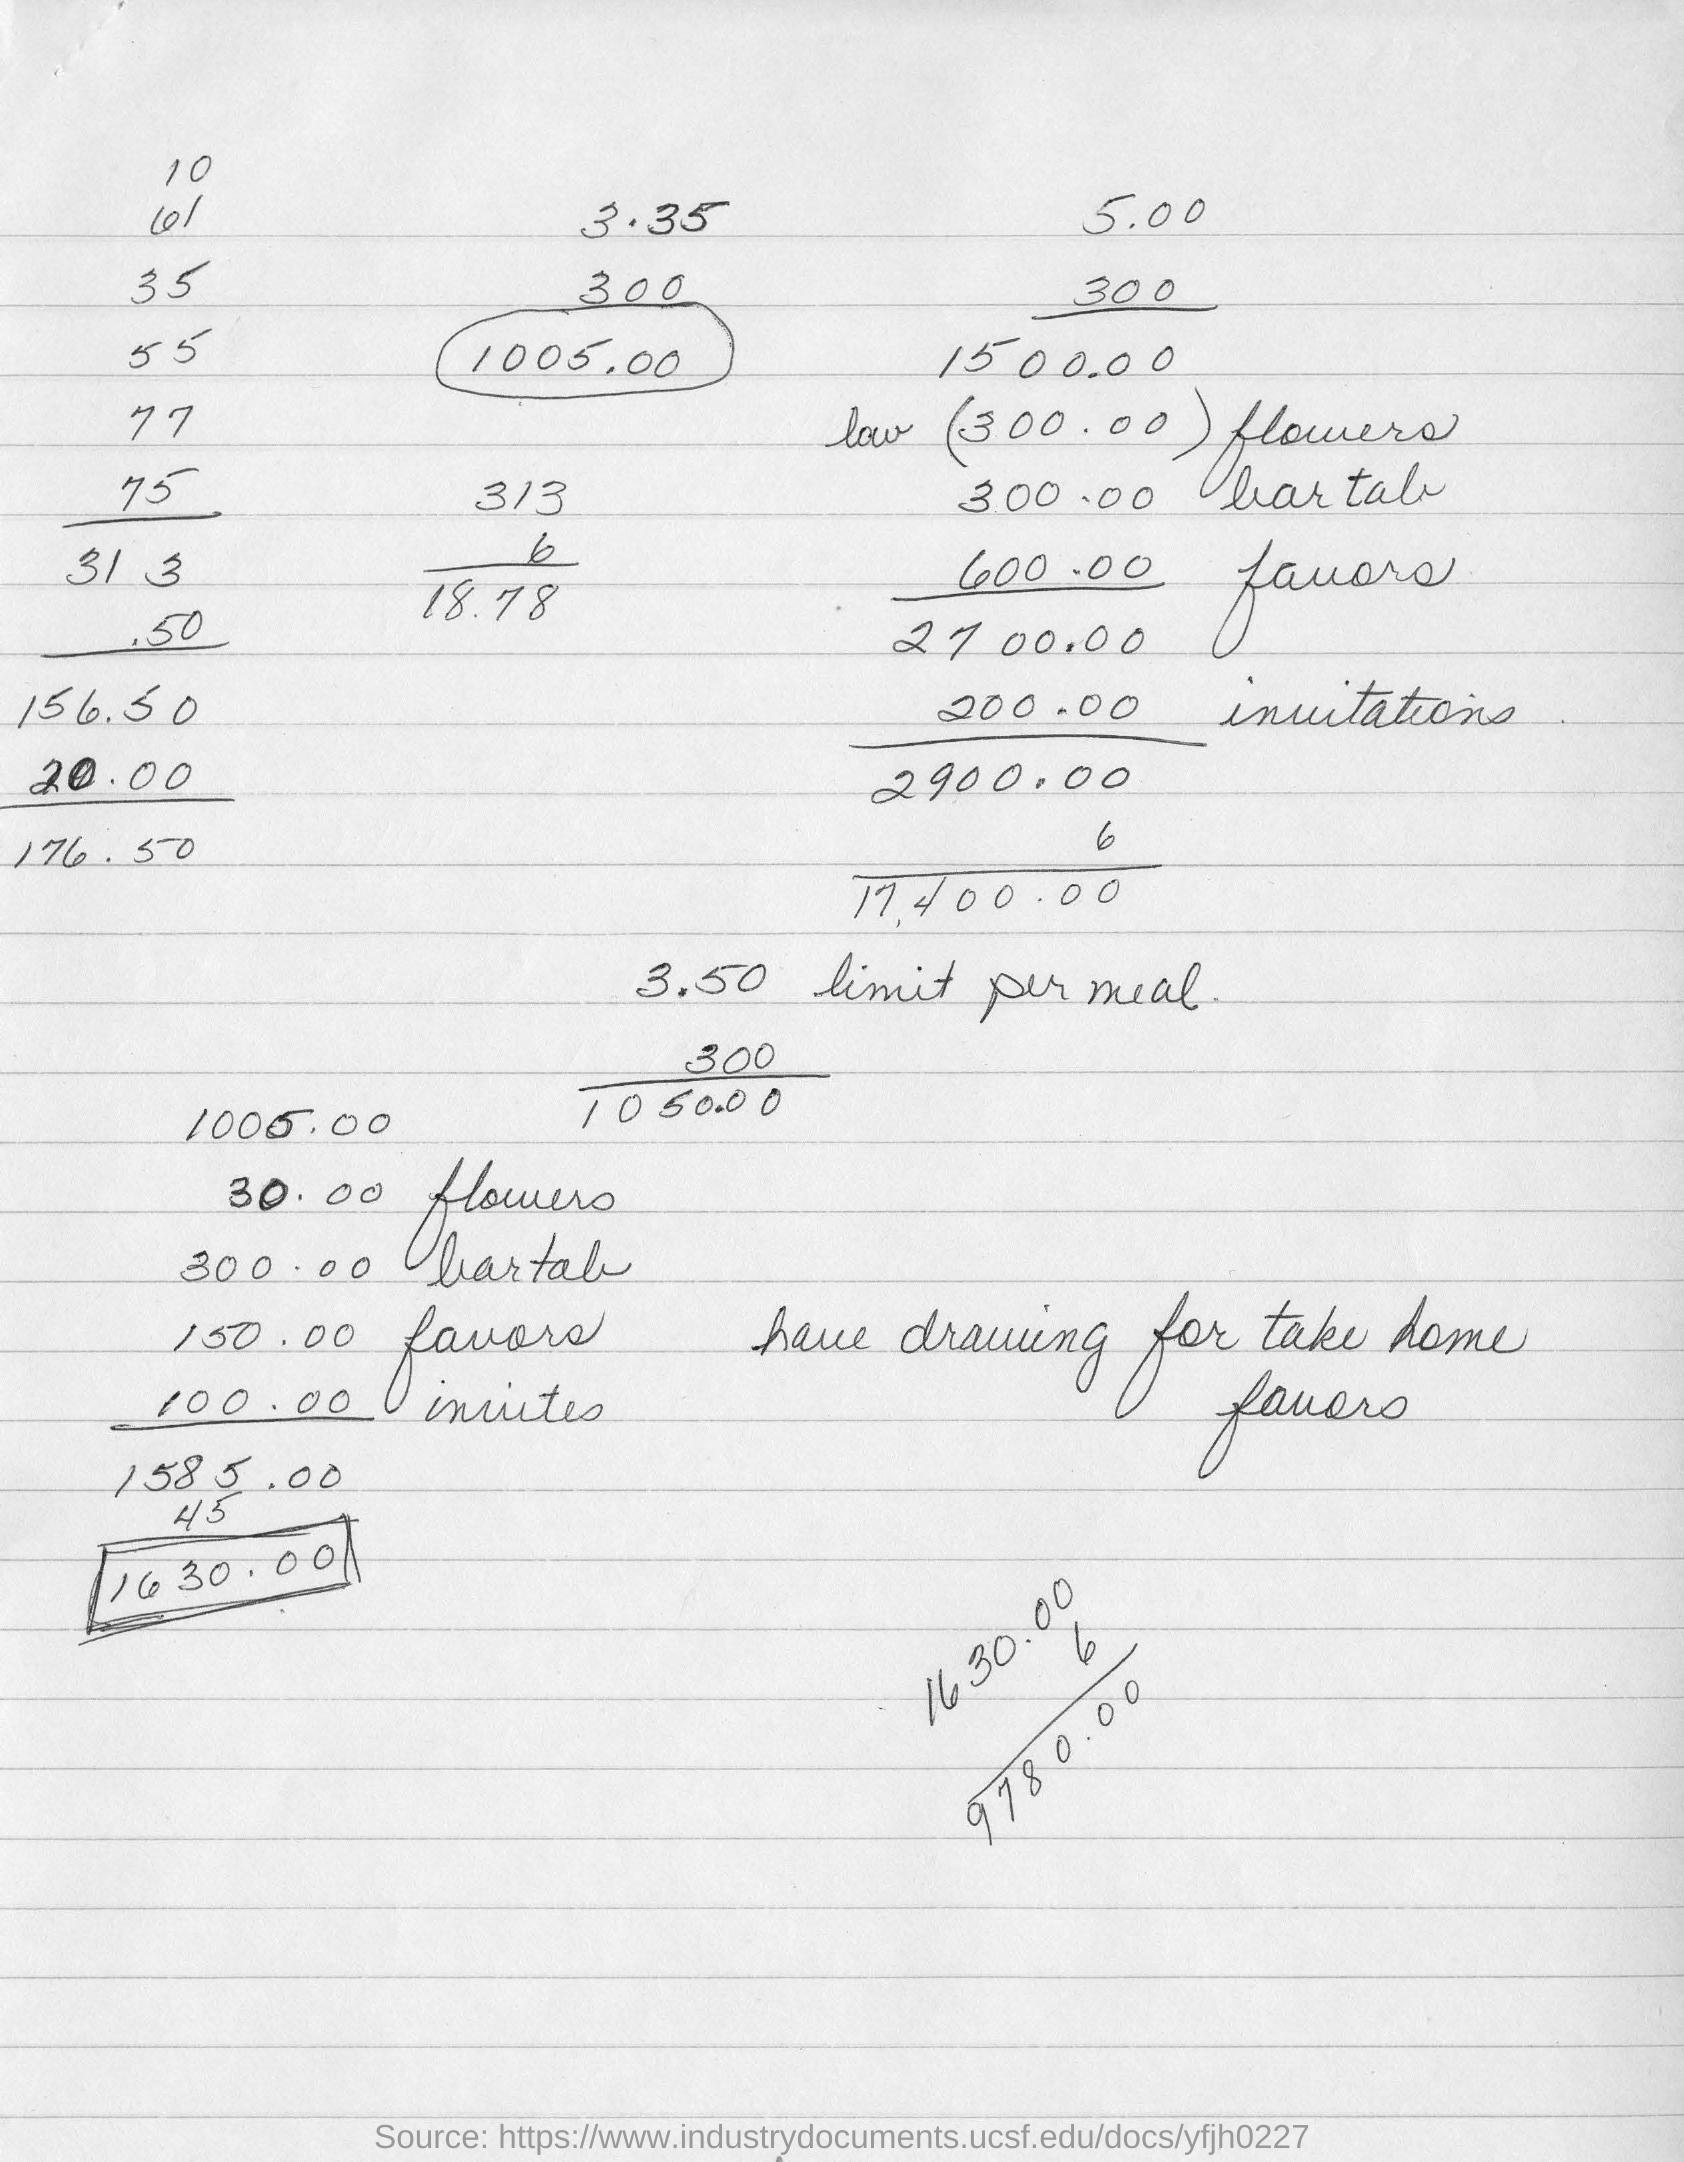 10
61
35
55
77
75
313
.50
156.50
20.00
176.50
3.35
300
1005.00
313
6
18.78
5.00
300
1500.00
low (300.00) flowers
300.00 bar tab
600.00 favors
2700.00
200.00 invitations
2900.00
6
17,400.00
3.50 limit per meal.
300
1050.00
1005.00
30.00 flowers
300.00 bar tab
150.00 favors
100.00 invites
1585.00
45
1630.00
have drawing for take home
favors
1630.00
6
9780.00
Source: https://www.industrydocuments.ucsf.edu/docs/yfjh0227